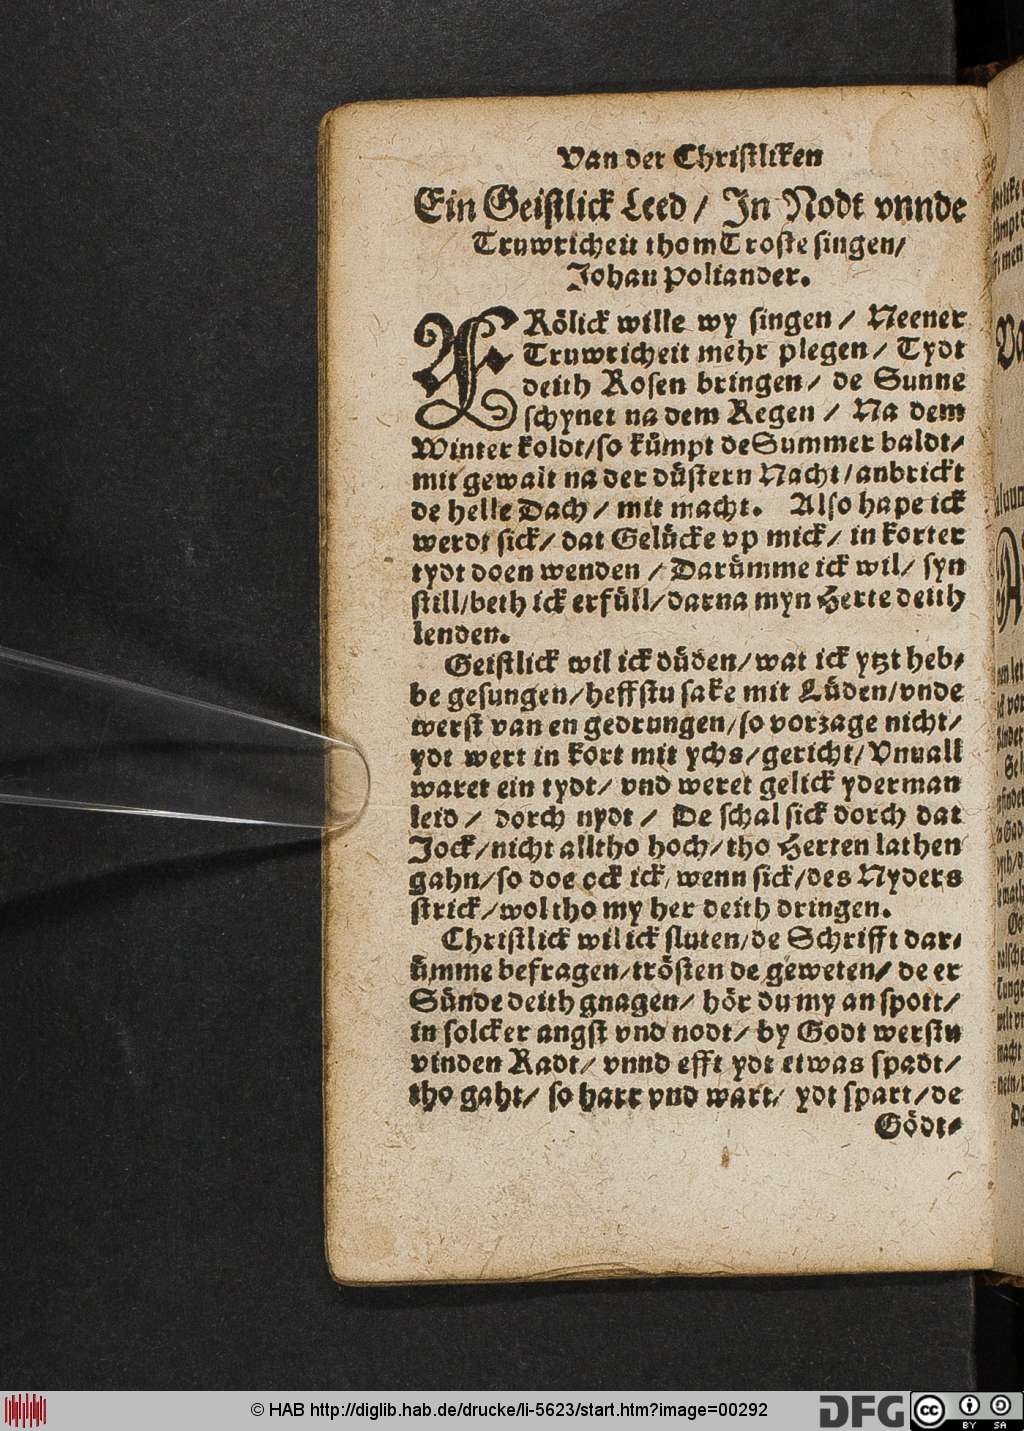 Van der Christliken
Ein Geistlick Leed / In Nodt vnnde
Truwricheit thom Troste singen /
Johan Poliander.
FRölick wille wy singen / Neener
Truwricheit mehr plegen / Tydt
deith Rosen bringen / de Sunne
schynet na dem Regen / Na dem
Winter koldt / so kümpt de Summer baldt /
mit gewalt na der düstern Nacht / anbrickt
de helle Dach / mit macht. Also hape ick
werdt sick / dat Gelücke vp mick / in korter
tydt doen wenden / Darümme ick wil / syn
still / beth ick erfüll / darna myn Herte deith
lenden.
Geistlick wil ick düden / wat ick ytzt heb⸗
be gesungen / heffstu sake mit Lüden / vnde
werst van en gedrungen / so vorzage nicht /
ydt wert in kort mit ychs / gericht / Vnuall
waret ein tydt / vnd weret gelick yderman
leid / dorch nydt / De schal sick dorch dat
Jock / nicht alltho hoch / tho Herten lathen
gahn / so doe ock ick / wenn sick / des Nyders
strick / wol tho my her deith dringen.
Christlick wil ick sluten / de Schrifft dar⸗
ümme befragen / trösten de geweten / de er
Sünde deith gnagen / hör du my an spott /
in solcker angst vnd nodt / by Godt werstu
vinden Radt / vnnd efft ydt etwas spadt /
tho gaht / so harr vnd wart / ydt spart / de
Gödt⸗
© HAB http://diglib.hab.de/drucke/li-5623/start.htm?image=00292
DFG
cc BY SA